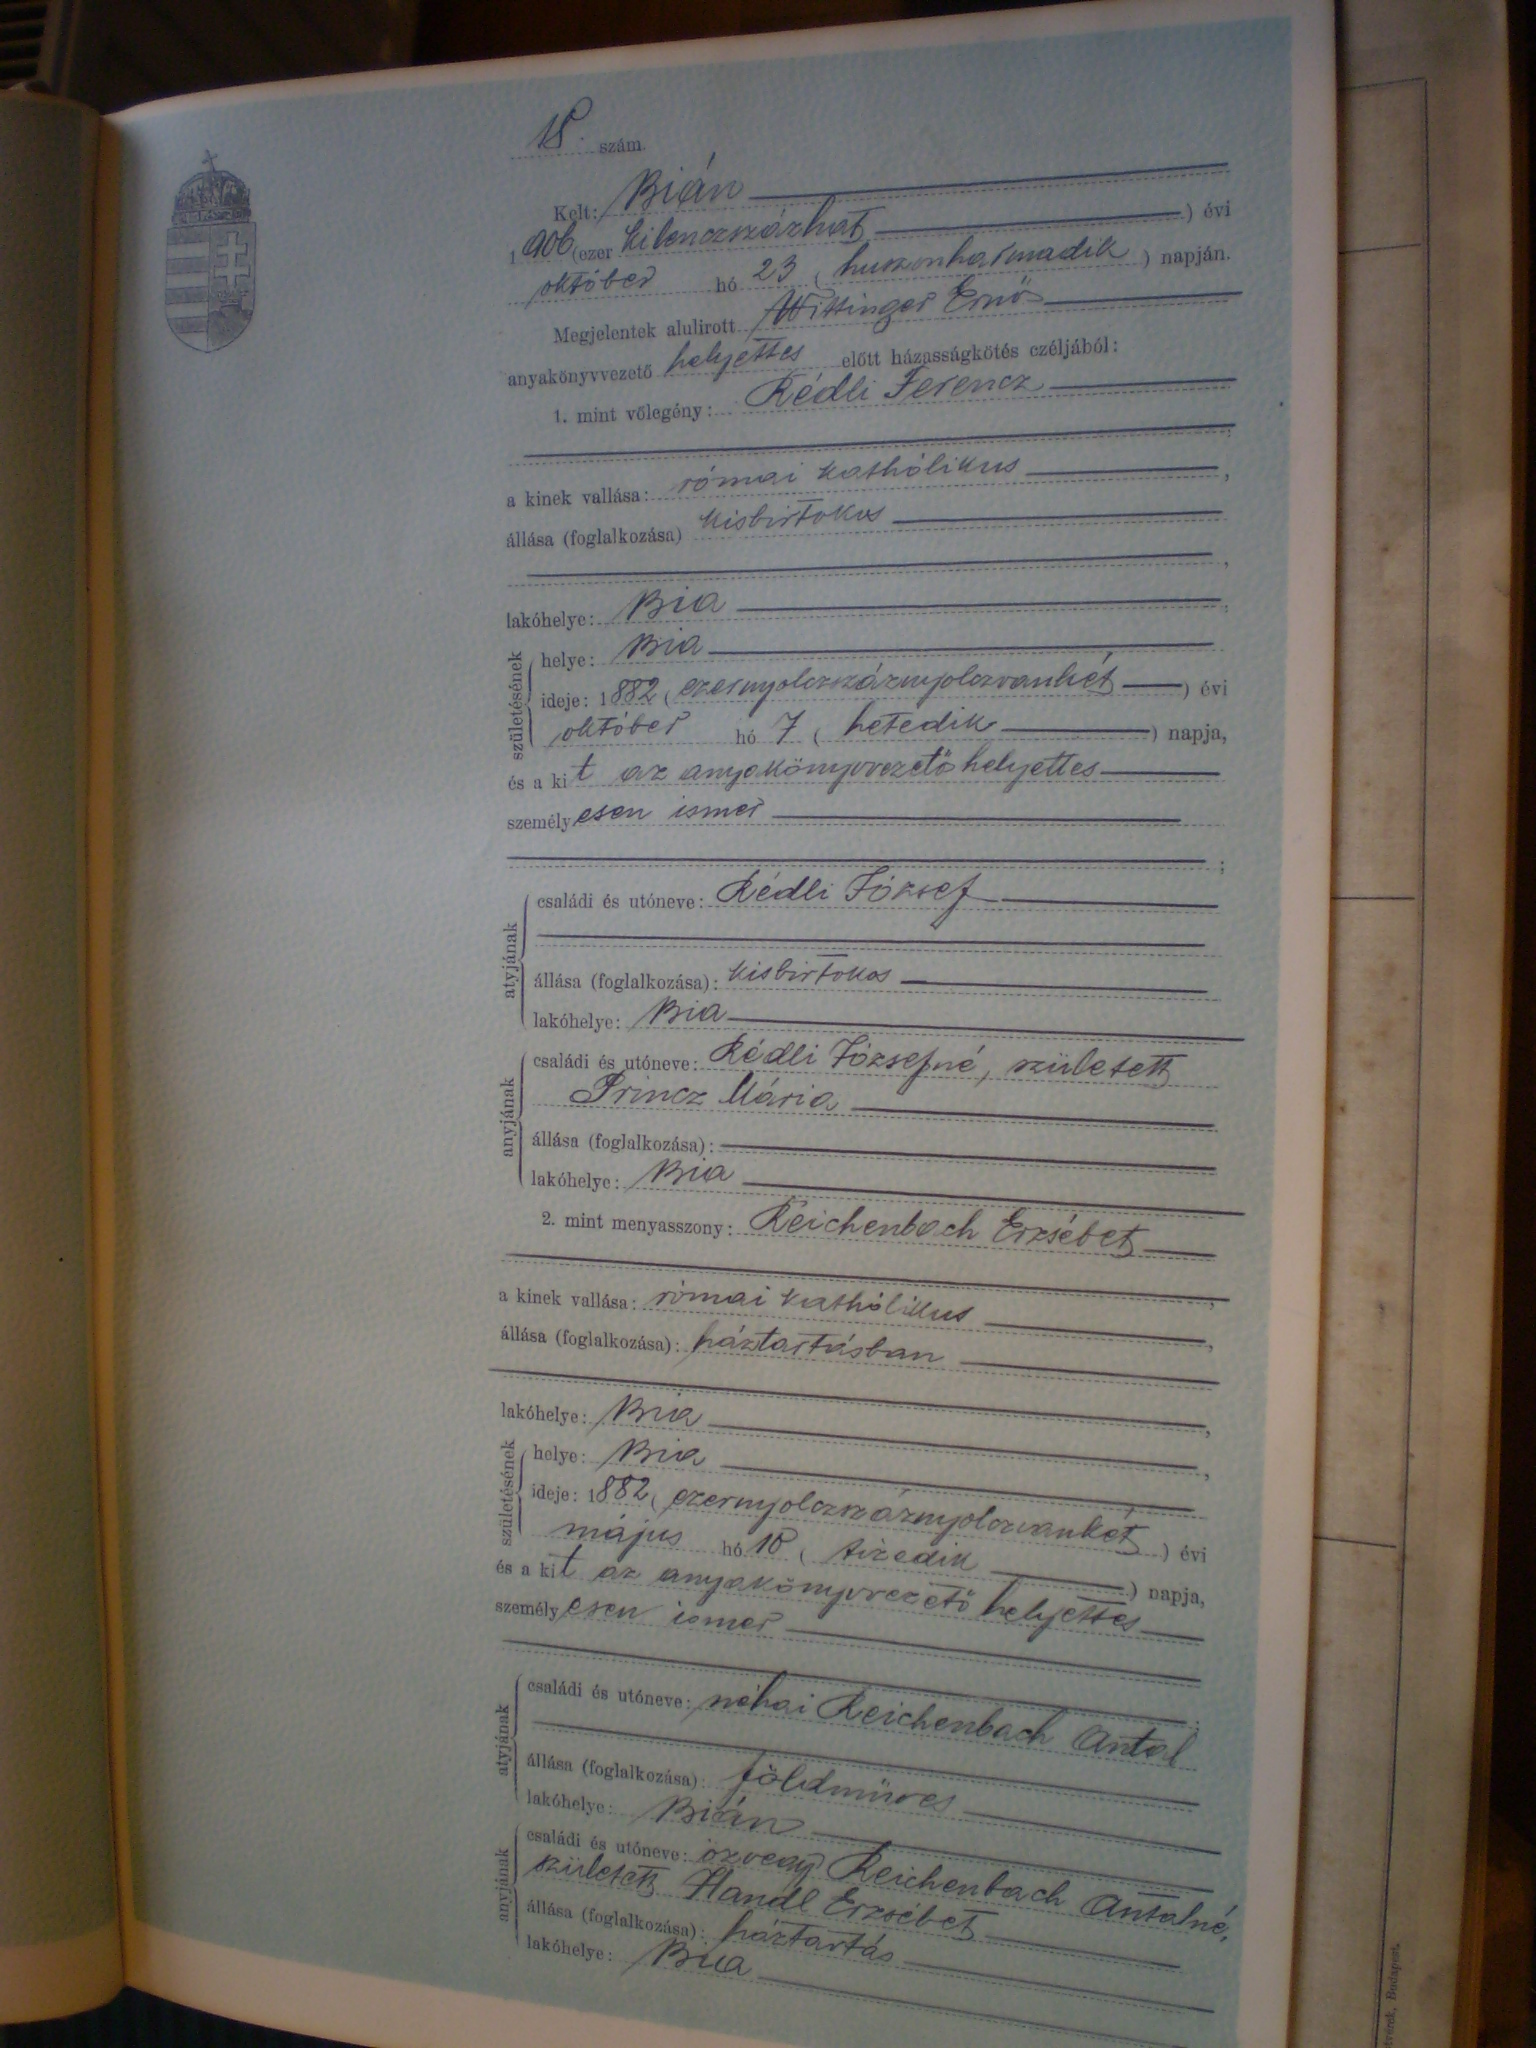 18. szám.
Kelt: Bián
1906 (ezer kilenczszázhat ) évi
október hó 23 ( huszonharmadik ) napján.
Megjelentek alulirott Wittinger Ernő
anyakönyvvezető helyettes előtt házasságkötés czéljából:
1. mint vőlegény: Rédli Ferencz
a kinek vallása: római kathólikus
állása (foglalkozása) kisbirtokos
lakóhelye: Bia
születésének
helye: Bia
ideje: 1882 (ezernyolczszáznyolczvankét ) évi
október hó 7 ( hetedik ) napja,
és a kit az anyakönyvvezető helyettes
személyesen ismer
atyjának
családi és utóneve: Rédli József
állása (foglalkozása): kisbirtokos
lakóhelye: Bia
anyjának
családi és utóneve: Rédli Józsefné, született
Princz Mária
állása (foglalkozása):
lakóhelye: Bia
2. mint menyasszony: Reichenbach Erzsébet
a kinek vallása: római kathólikus
állása (foglalkozása): háztartásban
lakóhelye: Bia
születésének
helye: Bia
ideje: 1882 (ezernyolczszáznyolczvankét ) évi
május hó 10 ( tizedik ) napja,
és a kit az anyakönyvvezető helyettes
személyesen ismer
atyjának
családi és utóneve: néhai Reichenbach Antal
állása (foglalkozása): földműves
lakóhelye: Bián
anyjának
családi és utóneve: özvegy Reichenbach Antalné,
született Handl Erzsébet
állása (foglalkozása): háztartás
lakóhelye: Bia
Budapest.